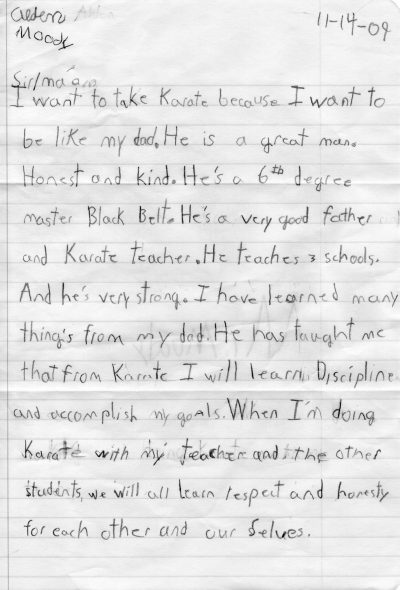 Moody
11-14-09
Sir/ma'am
I want to take Karate because I want to
be like my dad. He is a great man.
Honest and kind. He's a 6th degree
master Black Belt. He's a very good father
and Karate teacher. He teaches 3 schools.
And he's very strong. I have learned many
thing's from my dad. He has taught me
that from Karate I will learn Discipline
and accomplish my goals. When I'm doing
Karate with my teacher and the other
students, we will all learn respect and honesty
for each other and our selves.